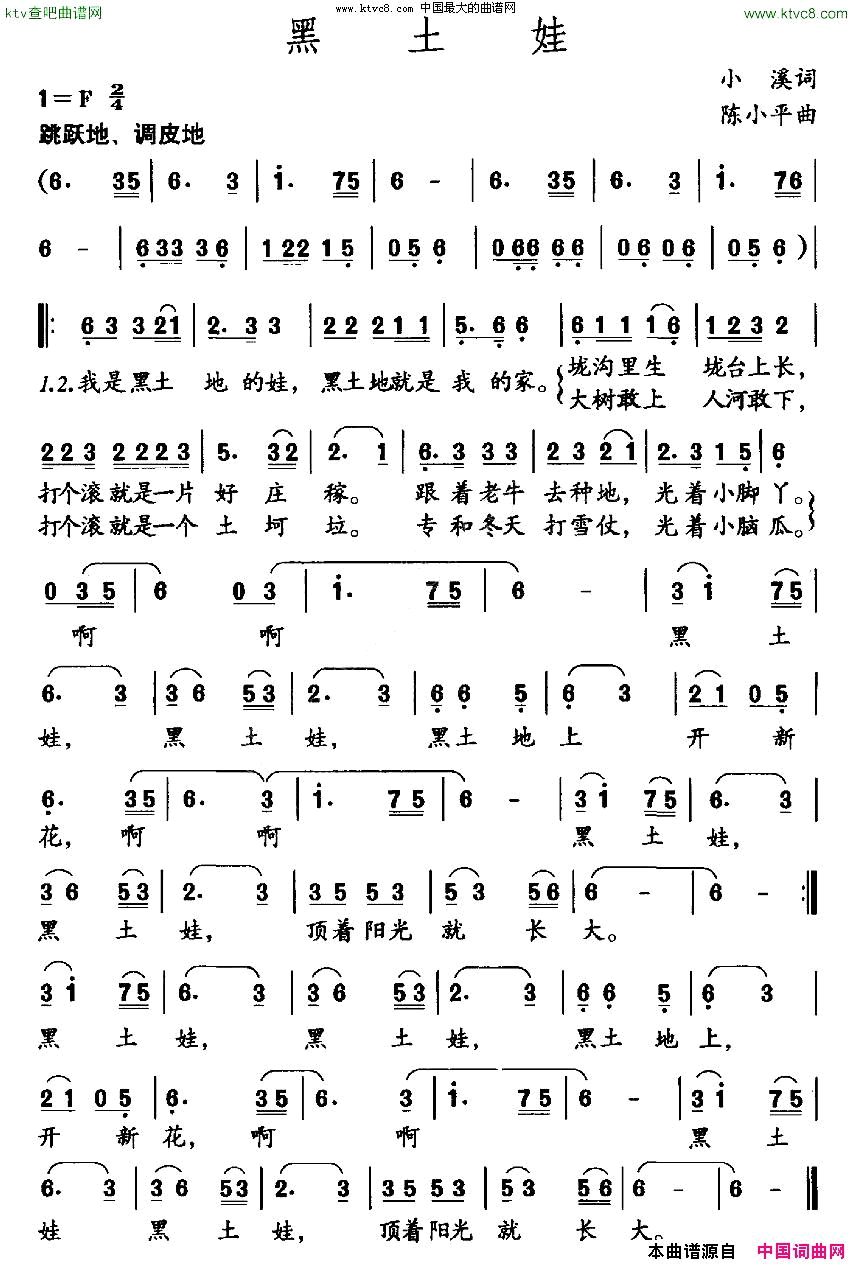 ktv查吧曲谱网
www.ktvc8.com 中国最大的曲谱网
www.ktvc8.com
黑 土 娃
小 溪词
1=F 2/4
陈小平曲
跳跃地、调皮地
(6. 35 | 6. 3 | i. 75 | 6 - | 6. 35 | 6. 3 | i. 76 |
6 - | 633 36 | 122 15 | 05 6 | 066 66 | 06 06 | 05 6 ) |
‖: 63 321 | 2. 33 | 22 211 | 5. 66 | 611 116 | 123 2 |
1.2.我是黑土 地的娃, 黑土地就是 我 的家。 垅沟里生 垅台上长,
大树敢上 人河敢下,
223 2223 | 5. 32 | 2. 1 | 6.3 33 | 23 21 | 2.3 15 | 6
打个滚就是一片 好 庄 稼。 跟着老牛 去种地, 光着小脚 丫。
打个滚就是一个 土 坷 垃。 专和冬天 打雪仗, 光着小脑 瓜。
0 35 | 6 03 | i. 75 | 6 - | 3 i 75 |
啊 啊 黑 土
6. 3 | 36 53 | 2. 3 | 66 5 | 6 3 | 21 05 |
娃, 黑 土 娃, 黑土 地 上 开 新
6. 35 | 6. 3 | i. 75 | 6 - | 3i 75 | 6. 3 |
花, 啊 啊 黑 土 娃,
36 53 | 2. 3 | 35 53 | 53 56 | 6 - | 6 - :‖
黑 土 娃, 顶着阳光 就 长 大。
3i 75 | 6. 3 | 36 53 | 2. 3 | 66 5 | 6 3 |
黑 土 娃, 黑 土 娃, 黑土 地 上,
21 05 | 6. 35 | 6. 3 | i. 75 | 6 - | 3i 75 |
开 新 花, 啊 啊 黑 土
6. 3 | 36 53 | 2. 3 | 35 53 | 53 56 | 6 - | 6 - ‖
娃 黑 土 娃, 顶着阳光 就 长 大。
本曲谱源自 中国词曲网